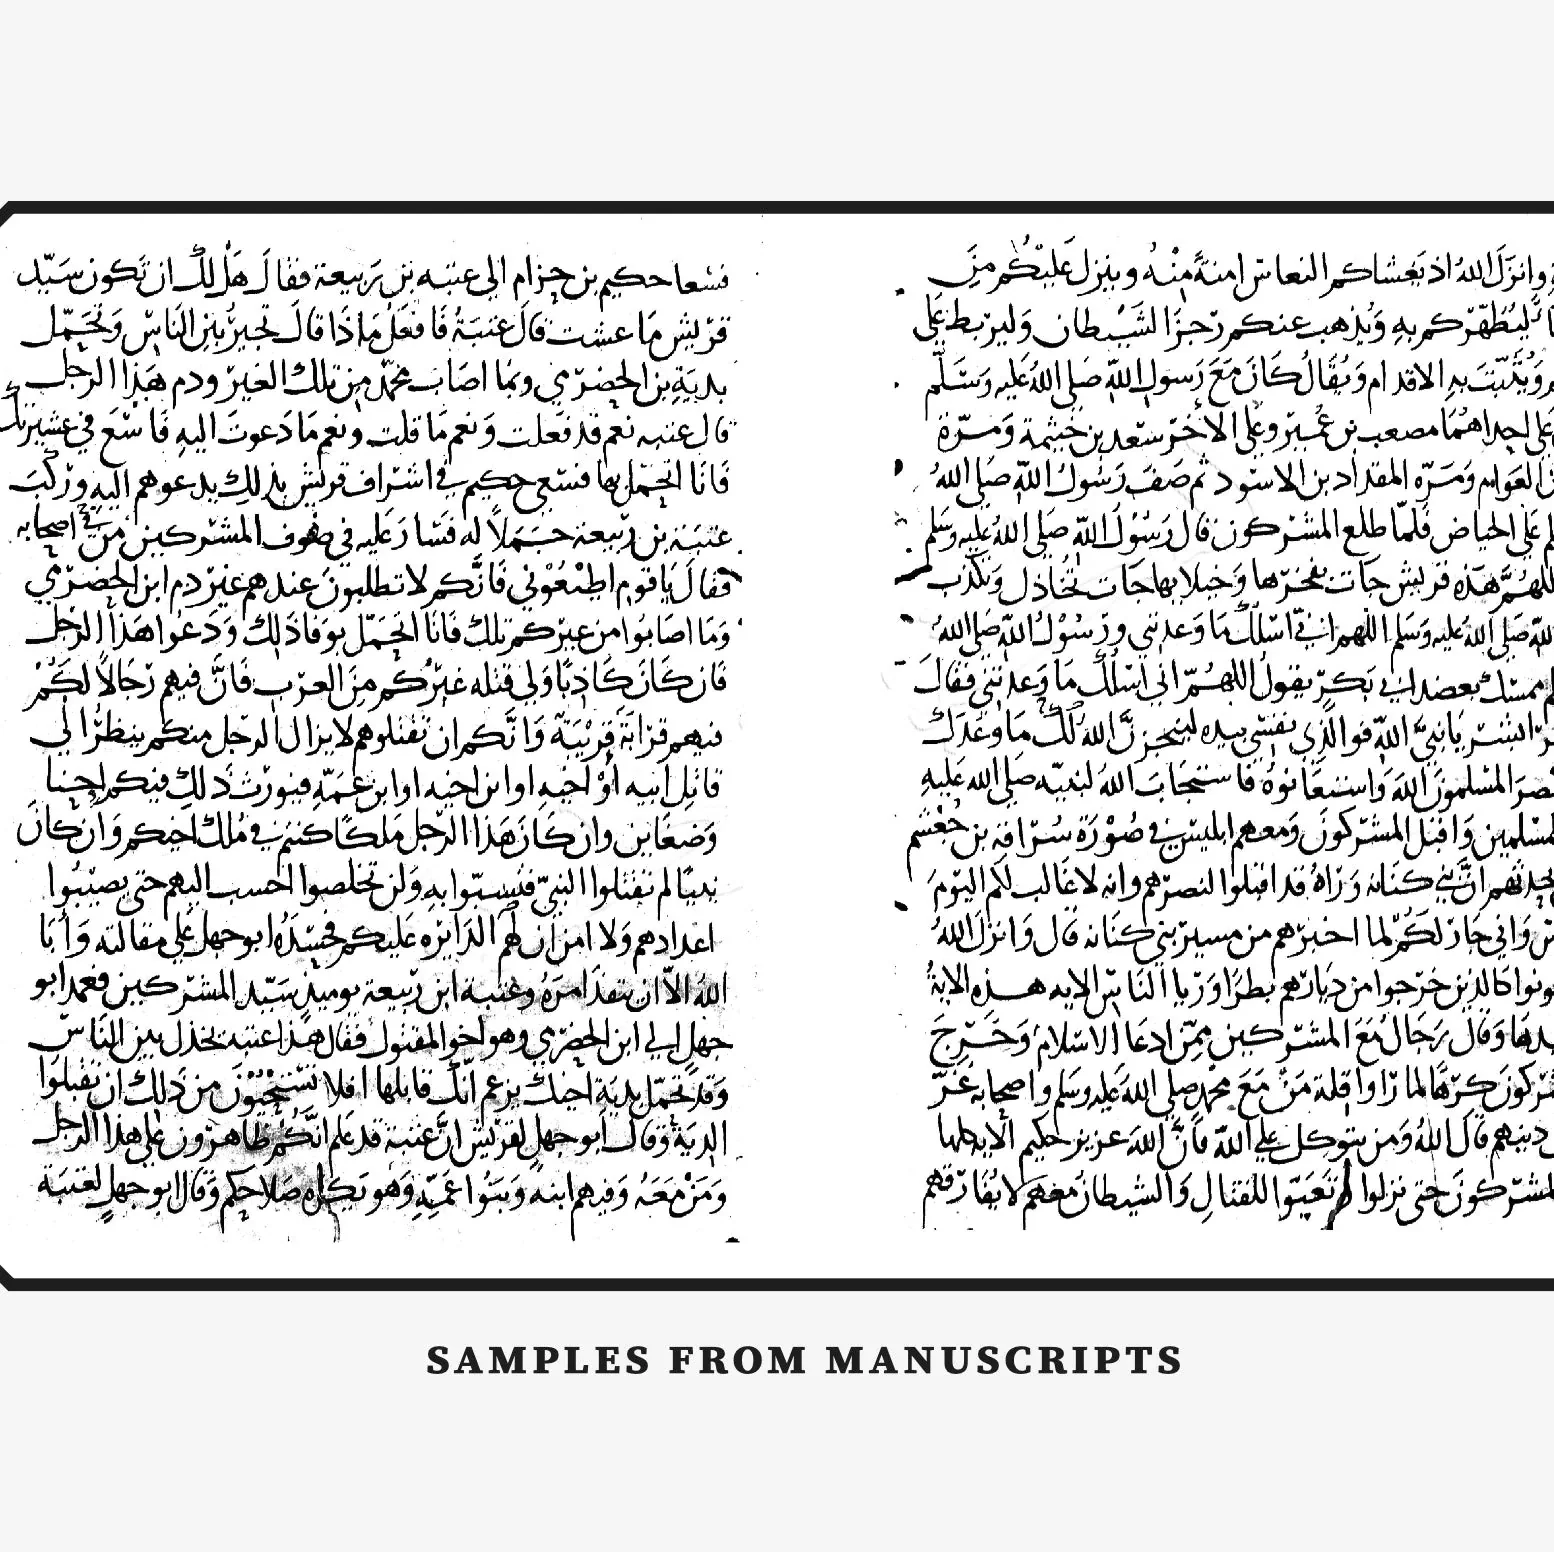 وانزل الله اذ يغشاكم النعاس امنةً منه وينزل عليكم من
ليُطهّركم به ويذهب عنكم رجز الشيطان وليربط على
ويُثبّت به الاقدام ويقال كان مع رسول الله صلى الله عليه وسلّم
على احداهما مصعب بن عمير وعلى الاخر سعد بن خيثمة ومرّة
العوام ومرّه المقداد بن الاسود ثم صف رسول الله صلى الله
على الحياض فلمّا طلع المشركون قال رسول الله صلى الله عليه وسلم
اللهمّ هذه قريش جات بفخرها وخيلابها جات تخاذل وتكذب
الله صلى الله عليه وسلم اللهم اني اسلك ما وعدتني ورسول الله صلى الله
ممسك بعضد ابي بكر يقول اللهمّ اني اسلك ما وعدتني فقال
ابشر يا نبيّ الله فوالذي نفسي بيده لينجزنّ الله لك ما وعدك
المسلمون الله واستغاثوه فاستجاب الله لنبيّه صلى الله عليه
المسلمين واقبل المشركون ومعهم ابليس في صورة سراقه بن جعشم
انّ بني كنانه وراه قد اقبلوا لنصرهم وانه لا غالب لكم اليوم
واني جار لكم لما اخبرهم من مسير بني كنانه قال وانزل الله
كالذين خرجوا من ديارهم بطرا وريا الناس الايه هذه الاية
وقال رجال مع المشركين ممّن ادعا الاسلام وخرج
كرها لما راوا قلة من مع محمد صلى الله عليه وسلم واصحابه غرّ
دينهم قال الله ومن يتوكل على الله فانّ الله عزيز حكيم الايه كلها
المشركون حتى نزلوا وتعبّوا للقتال والشيطان معهم لا يفارقهم
فسعا حكيم بن حزام الى عتبه بن ربيعة فقال هل لك ان تكون سيّد
قريش ما عشت قال عتبة فافعل ماذا قال تجير بين الناس وتحمّل
بدية بن الحضرمي وبما اصاب محمّد من تلك العير ودم هذا الرجل
قال عتبه نعم قد فعلت ونعم ما قلت ونعم ما دعوت اليه فاسع في عشيرتك
فانا اتحمّل بها فسعى حكيم في اشراف قريش بذلك يدعوهم اليه وركب
عتبة بن ربيعة جملاً له فسار عليه في صفوف المشركين من في اصحابه
فقال يا قوم اطيعوني فانّكم لا تطلبون عندهم غير دم ابن الحضرمي
وما اصابوا من عيركم تلك فانا اتحمّل بوفا ذلك ودعوا هذا الرجل
فان كان كاذبًا ولي قتله غيركم من العرب فانّ فيهم رجالاً لكم
فيهم قرابة قريبة وانّكم ان تقتلوهم لا يزال الرجل منكم ينظر الى
قاتل ابيه او اخيه او ابن اخيه او ابن عمّه فيورث ذلك فيكم احنا
وضغاين وان كان هذا الرجل ملكا كنتم في ملك اخيكم وان كان
نبيًا لم تقتلوا النبيّ فتسبّوا به ولن تخلصوا احسب اليهم حتى يصيبوا
اعدادهم ولا امن ان لهم الدايره عليكم فحسده ابو جهل على مقالته وابا
الله الاّ ان ينفذ امره وعتبة ابن ربيعة يوميذ سيّد المشركين فعمد ابو
جهل الى ابن الحضرمي وهو اخو المقتول فقال هذا عتبه يخذل بين الناس
وقد تحمّل بدية اخيك يزعم انّك قابلها افلا تستحيون من ذلك ان تقبلوا
الدية وقال ابو جهل لقريش انّ عتبة قد علم انّكم ظاهرون على هذا الرجل
ومن معه وفيهم ابنه وبنوا عمّه وهو يكره صلاحكم وقال ابو جهل لعتبة
SAMPLES FROM MANUSCRIPTS